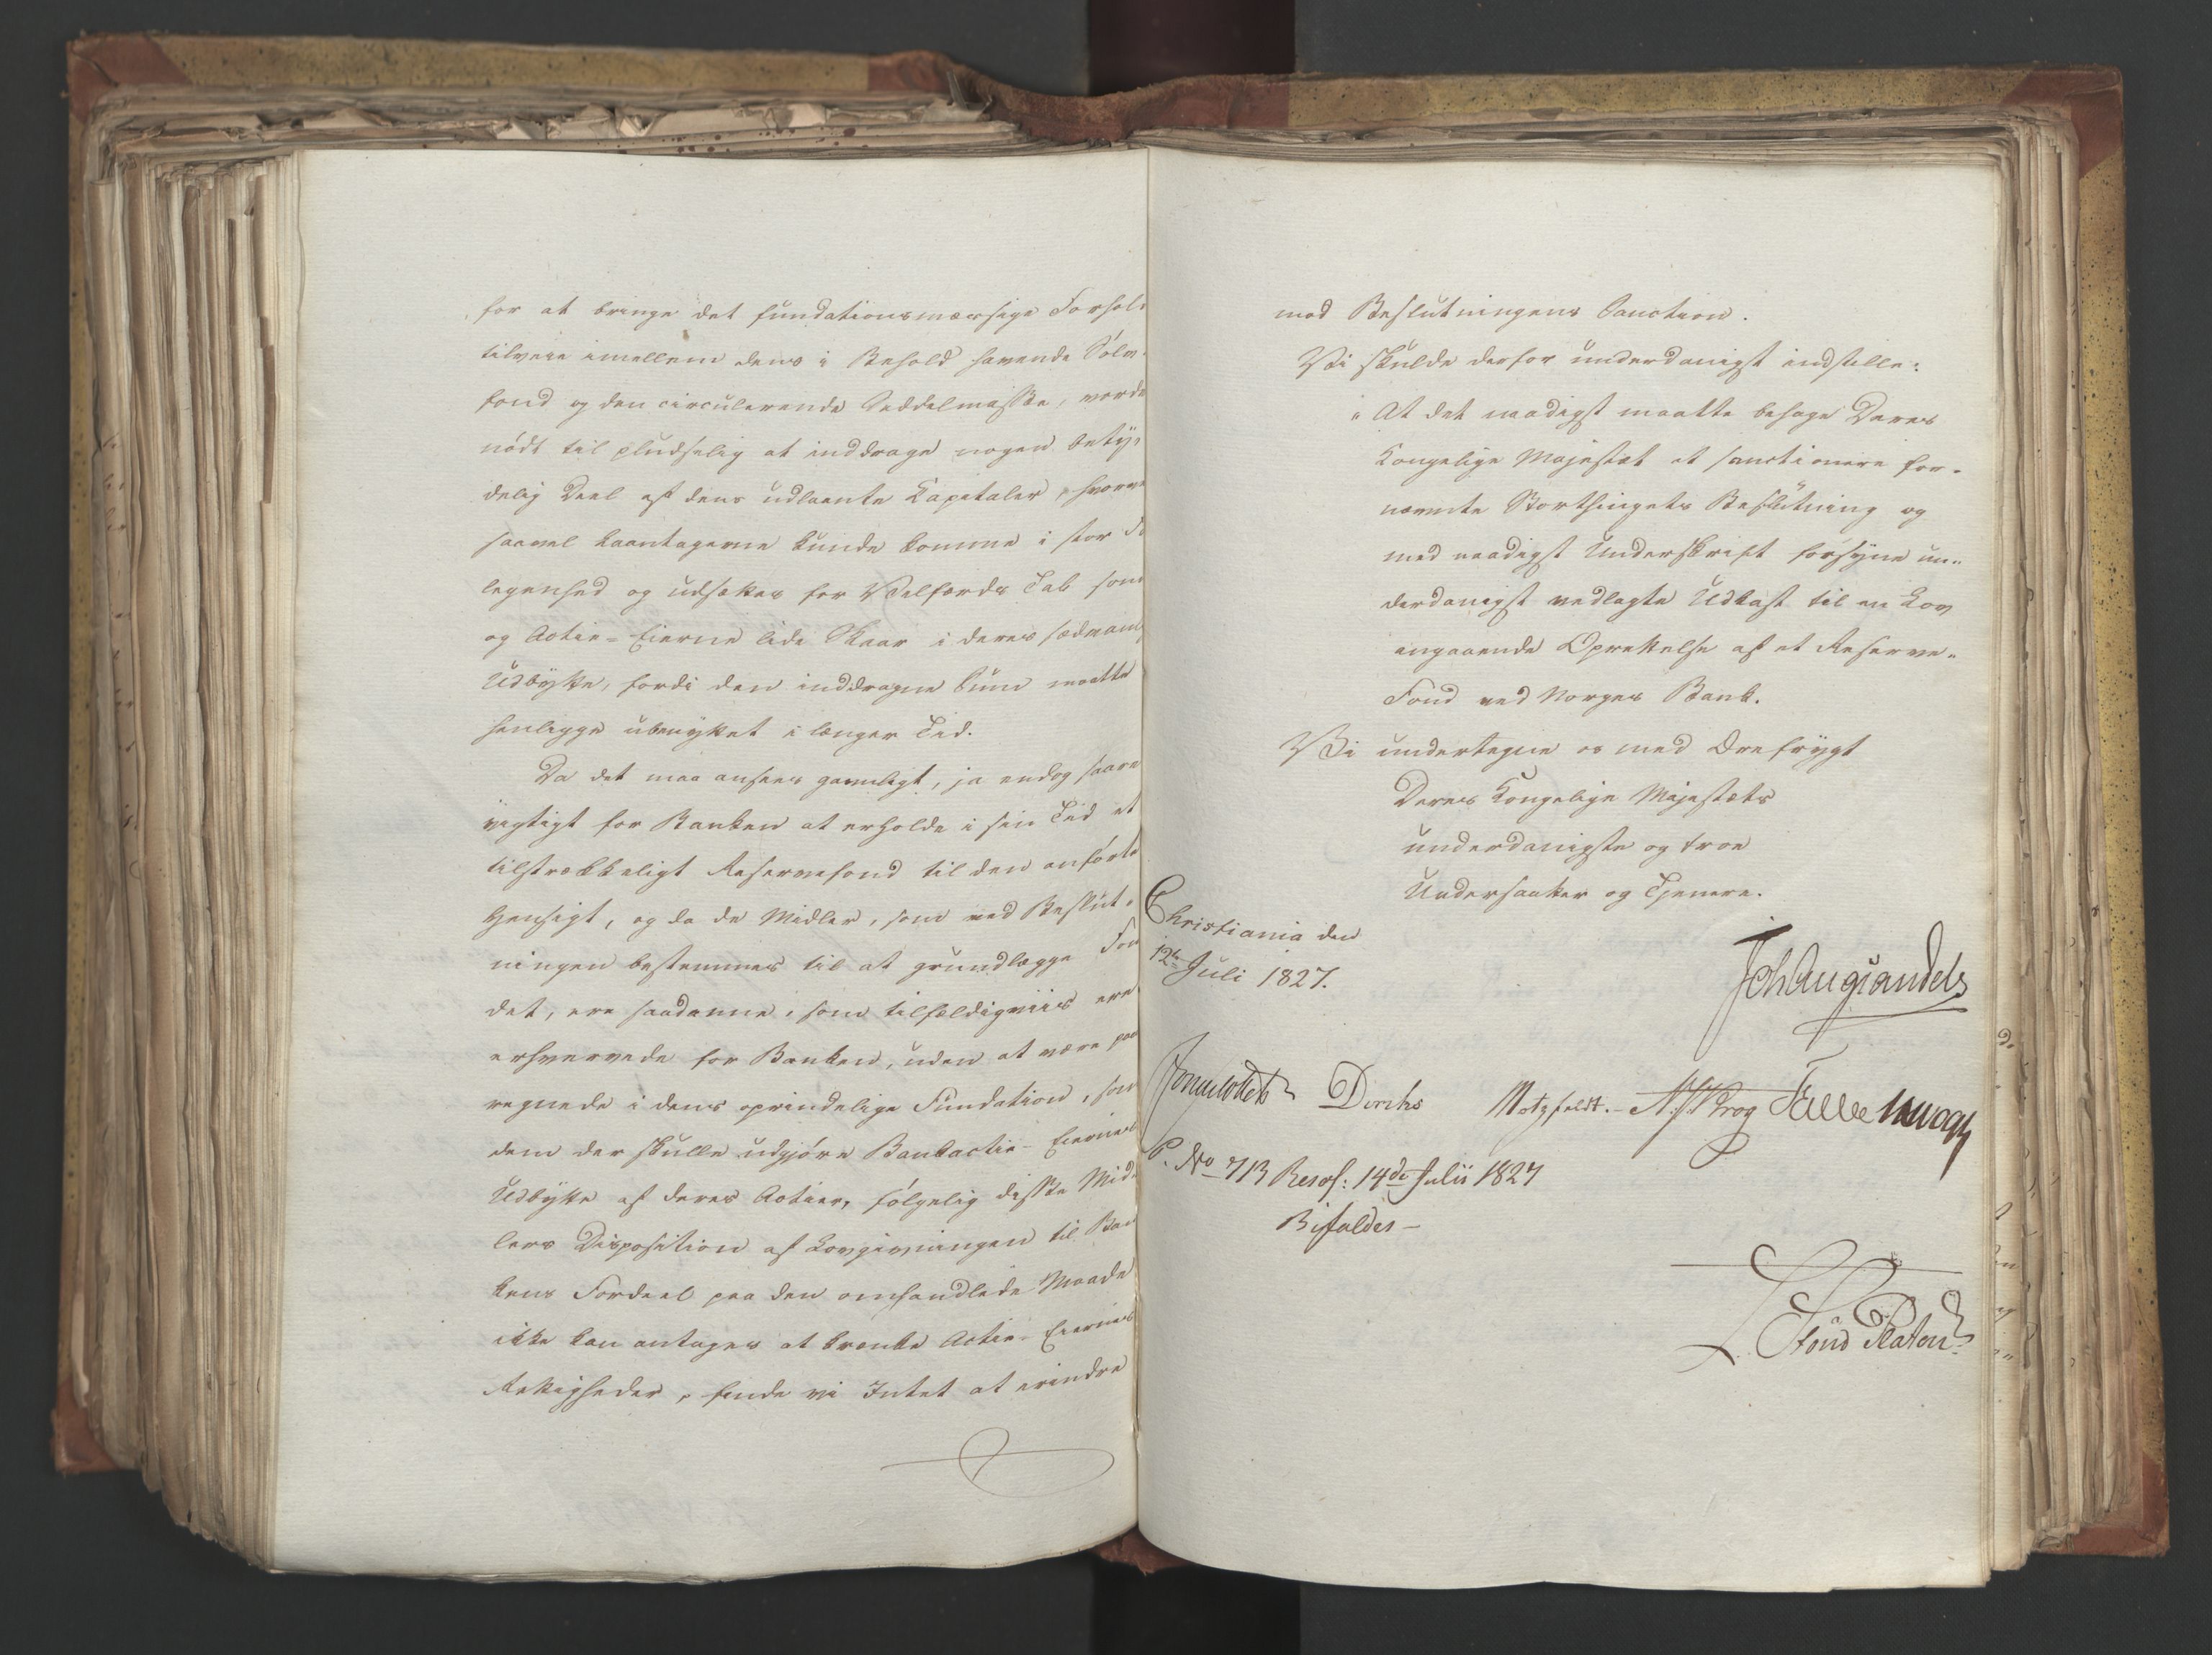 for at bringe det fundationsmæssige Forhold
tilveie imellem dens i Behold havende Sölv-
fond og den circulerende Seddelmasse, vorde
nödt til pludselig at inddrage nogen bety-
delig Deel af dens udlaante Kapitaler, hvorved
saavel Laantagerne kunde komme i stor For-
legenhed og udsættes for Velfærds Tab som
og Actie-Eierne lide Skaar i deres sædvanl.
Udbytte, fordi den inddragne Sum maatte
henligge ubenyttet i længer Tid.
Da det maa ansees gavnligt, ja endog saare
vigtigt for Banken at erholde i sin Tid et
tilstrækkeligt Reservefond til den anförte
Hensigt, og da de Midler, som ved Beslut-
ningen bestemmes til at grundlægge Fon-
det, ere saadanne, som tilfældigviis ere
erhvervede for Banken, uden at være paa-
regnede i dens oprindelige Fundation, som
dem der skulle udgjöre Bankactie-Eiernes
Udbytte af deres Actier, fölgelig disse Mid-
lers Disposition af Lovgivningen til Ban-
kens Fordeel paa den omhandlede Maade
ikke kan antages at krænke Actie-Eiernes
Rettigheder, finde vi Intet at erindre
mod Beslutningens Sanction.
Vi skulde derfor underdanigst indstille:
"At det naadigst maatte behage Deres
Kongelige Majestæt at sanctionere for-
nævnte Storthingets Beslutning og
med naadigst Underskrift forsyne un-
derdanigst vedlagte Udkast til en Lov
angaaende Oprettelse af et Reserve-
Fond ved Norges Bank.
Vi undertegne os med Ærefrygt
Deres Kongelige Majestæts
underdanigste og troe
Undersaatter og Tjenere.
Christiania den
12te Juli 1827.
Joh Aug Sandels
Sommerhielm Diriks Motzfeldt. Krog Fasting
P. No 713 Resol: 14de Julii 1827
Bifaldes -
Platen